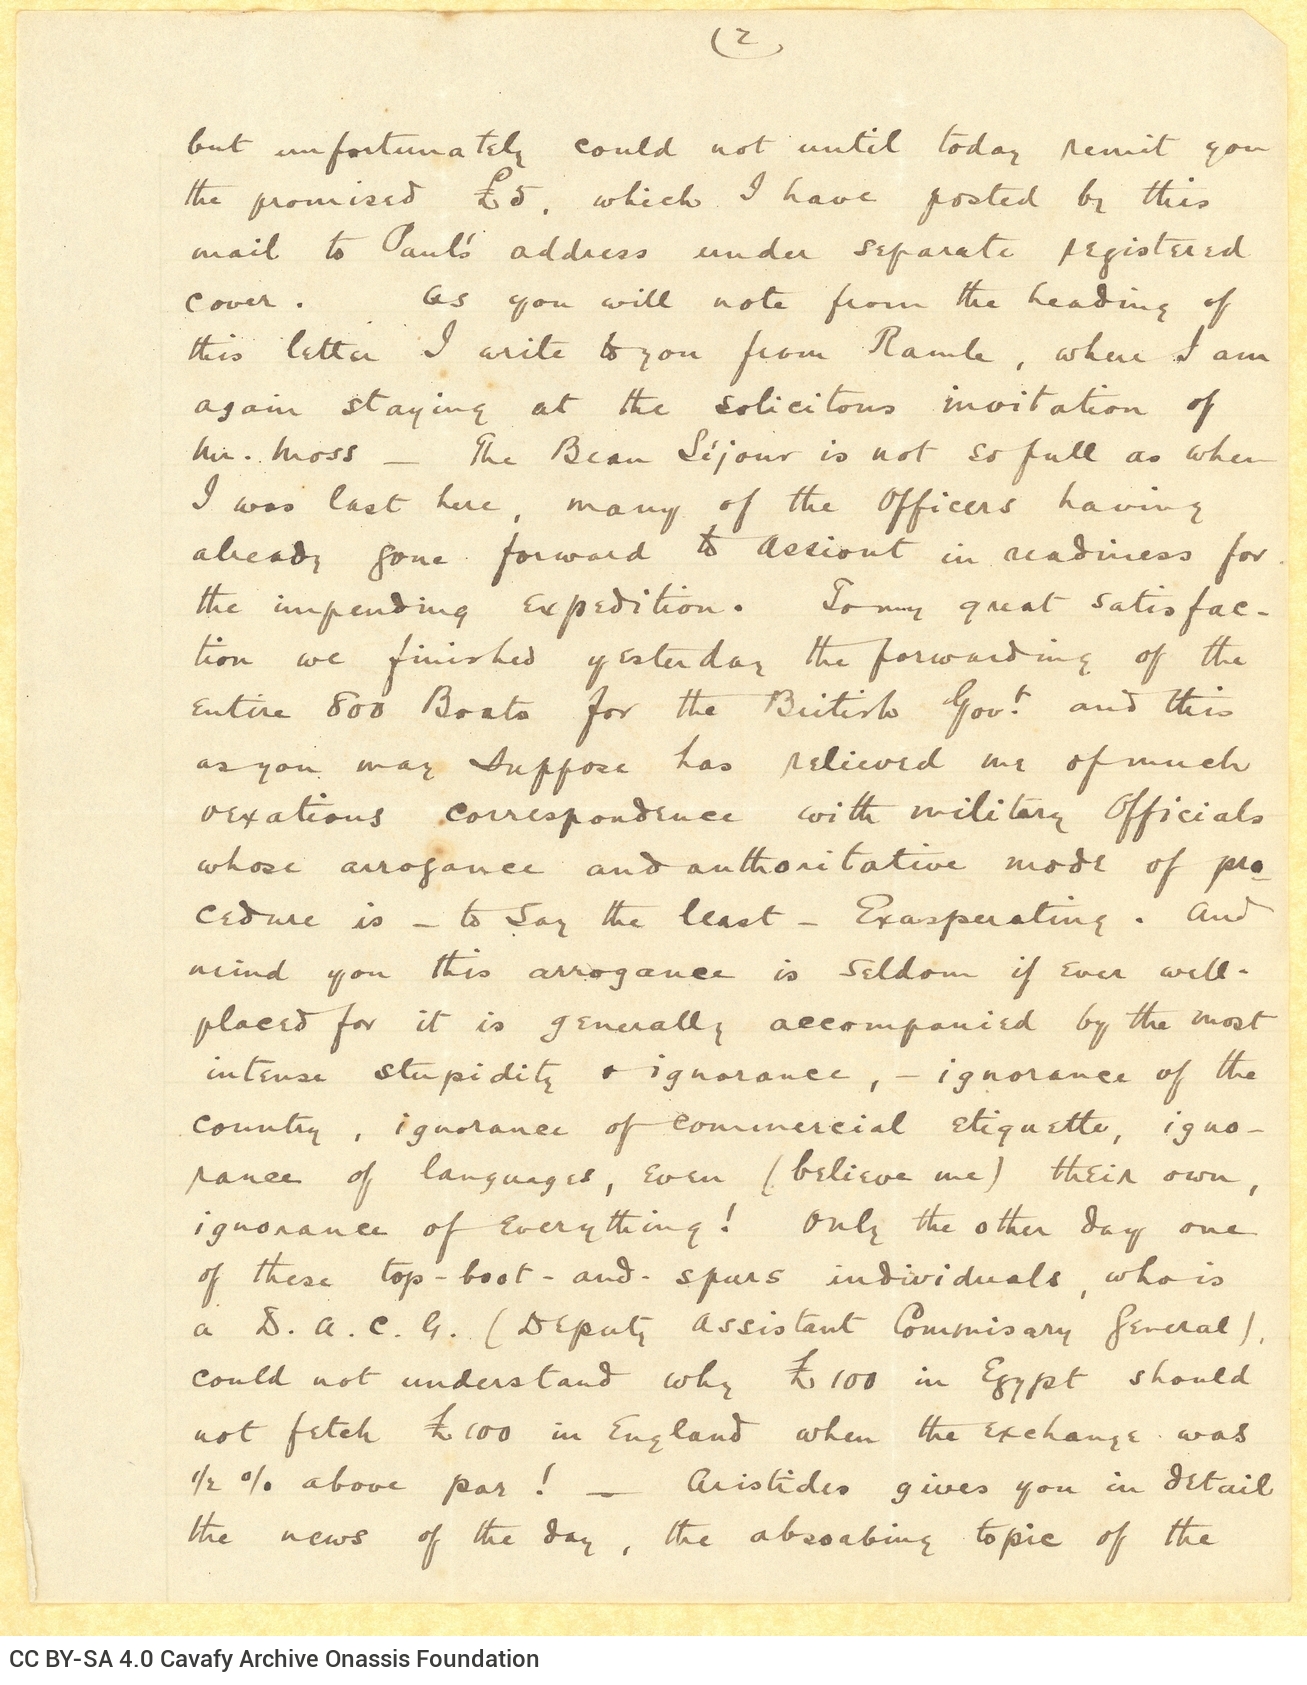 (2)
but unfortunately could not until today remit you
the promised £5, which I have posted by this
mail to Paul's address under separate registered
cover. As you will note from the heading of
this letter I write to you from Ramle, where I am
again staying at the solicitous invitation of
Mr. Moss — The Beau Séjour is not so full as when
I was last here, many of the Officers having
already gone forward to Assiout in readiness for
the impending Expedition. To my great satisfac-
tion we finished yesterday the forwarding of the
entire 800 Boats for the British Govt. and this
as you may suppose has relieved me of much
vexatious correspondence with military Officials
whose arrogance and authoritative mode of pro
cedure is – to say the least – Exasperating. And
mind you this arrogance is seldom if ever well-
placed for it is generally accompanied by the most
intense stupidity & ignorance, – ignorance of the
country, ignorance of commercial etiquette, igno-
rance of languages, even (believe me) their own,
ignorance of Everything! Only the other day one
of these top-boot-and-spurs individuals, who is
a D.A.C.G. (Deputy Assistant Commisary General),
could not understand why £100 in Egypt should
not fetch £100 in England when the exchange was
1/2 % above par! — Aristides gives you in detail
the news of the day, the absorbing topic of the
CC BY-SA 4.0 Cavafy Archive Onassis Foundation